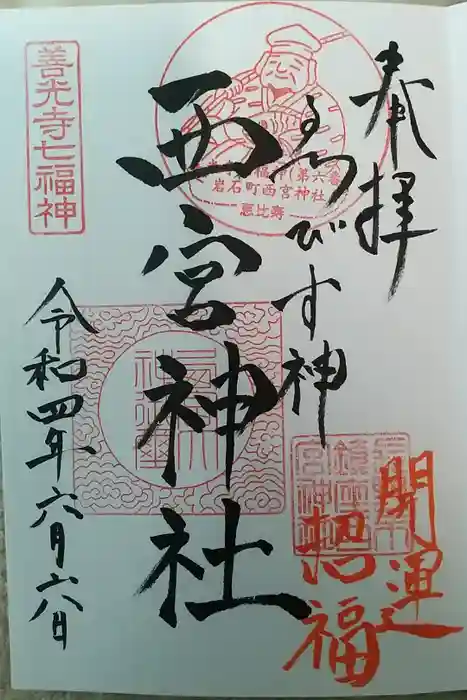 奉拝
ゑびす神
西宮神社
令和四年六月六日
開運
招福
善光寺七福神
福神(第六番
岩石町西宮神社
恵比寿